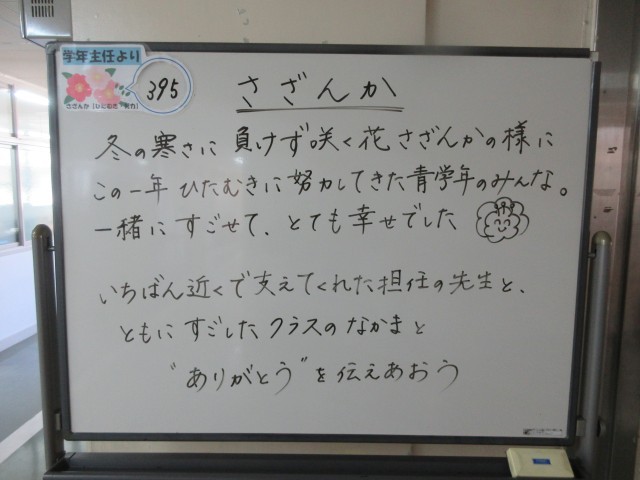 学年主任より
395
さざんか
さざんか「ひたむき 努力」
冬の寒さに 負けず咲く花 さざんかの様に
この一年 ひたむきに努力してきた青学年のみんな。
一緒にすごせて、とても幸せでした
いちばん近くで支えてくれた担任の先生と、
ともにすごしたクラスのなかまと
"ありがとう"を伝えあおう